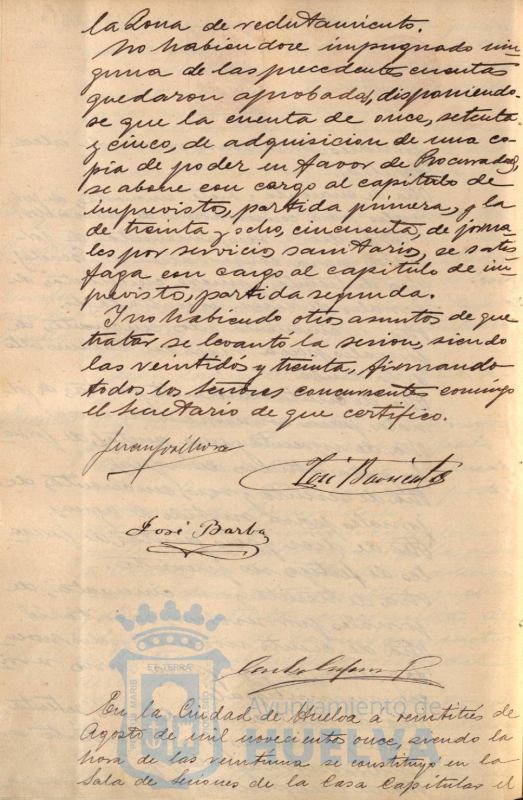 la Zona de reclutamiento.
No habiendose impugnado nin-
guna de las precedentes cuentas
quedaron aprobadas, disponiendo-
se que la cuenta de once, setenta
y cinco, de adquisicion de una co-
pia de poder en favor de Procurador,
se abone con cargo al capitulo de
imprevistos, partida primera, y la
de treinta y ocho, cincuenta, de jorna-
les por servicio sanitario, se satis-
faga con cargo al capitulo de im-
previstos, partida segunda.
Y no habiendo otros asuntos de que
tratar se levantó la sesion, siendo
las veintidós y treinta, firmando
todos los Señores concurrentes conmigo
el Secretario de que certifico.
José Barrientos
José Barba
ET TERRÆ
PORTUS MARIS
CUSTODIA
Ayuntamiento de
HUELVA
En la Ciudad de Huelva a veintitrés de
Agosto de mil novecientos once, siendo la
hora de las veintiuna se constituyó en la
Sala de Sesiones de la Casa Capitular el